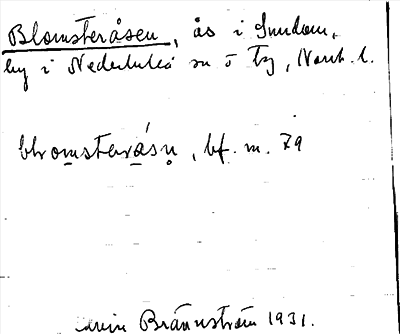 Blomsteråsen, ås i Sundom,
by i Nederluleå sn o tg, Norrb. l.
blomstəråsn̥, bf. m. 79
Brännström 1931.